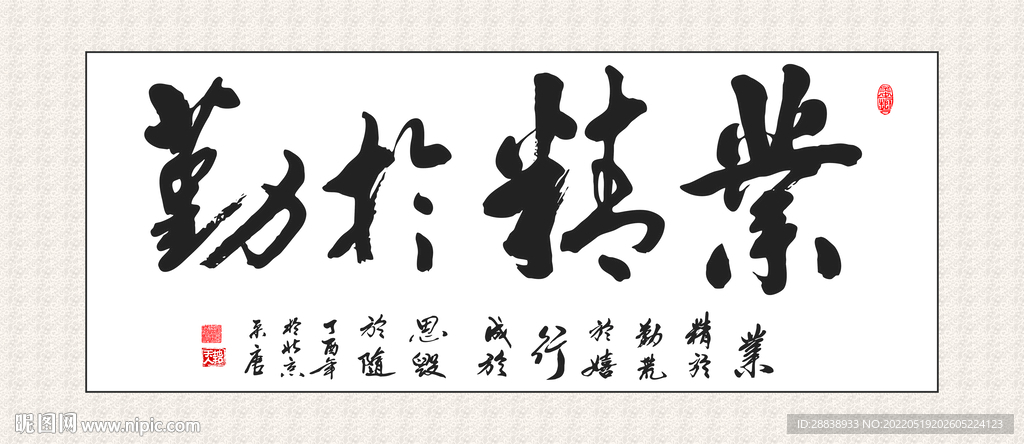 業精於勤
業
精於
勤荒
於嬉
行
成於
思毀
於隨
丁酉年
於北京
唐
昵图网 www.nipic.com
ID:28838933 NO:20220519202605224123